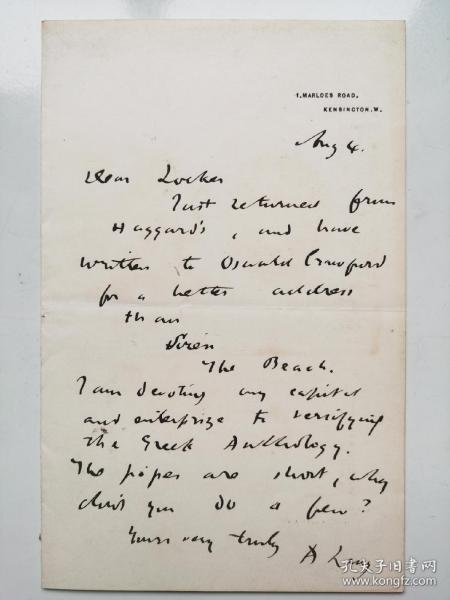 1, MARLOES ROAD,
KENSINGTON. W.
Aug 4.
Dear Locker
Just returned from
Haggard's, and have
written to Oswald Crawford
for a better address
than
Siren
The Beach.
I am devoting my capital
and enterprize to versifying
the Greek Anthology.
The pipes are short, why
don't you do a few?
Yours very truly
A Lang
孔夫子旧书网
www.kongfz.com